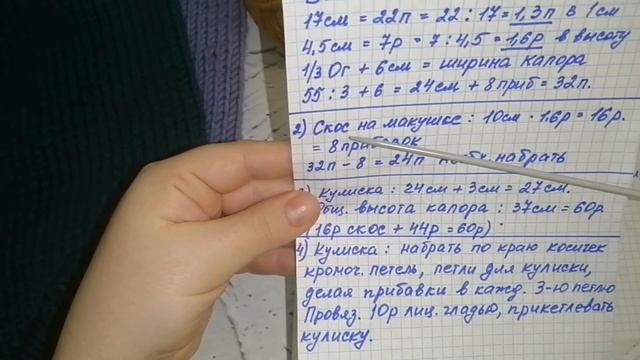 17см = 22п = 22 : 17 = 1,3п в 1см
4,5см = 7р = 7 : 4,5 = 1,6р в высоту
1/3 Ог + 6см = ширина капора
55 : 3 + 6 = 24см + 8приб = 32п.
2) Скос на макушке : 10см · 1,6р = 16р.
= 8
32п - 8 = 24п набрать
Кулиска : 24см + 3см = 27см.
Общ. высота капора : 37см = 60р
(16р скос + 44р = 60р)
4) Кулиска : набрать по краю косичек
кромоч. петель, петли для кулиски,
делая прибавки в кажд. 3-ю петлю
Провяз. 10р лиц. гладью, прикетлевать
кулиску.